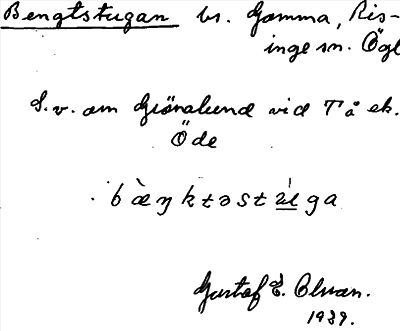 Bengtstugan bs. Gamma, Ris-
inge sn. Ögl
S.v. om Grönalund vid Tå ek.
Öde
bæŋktəstuga
Gustaf E. Olsson.
1939.